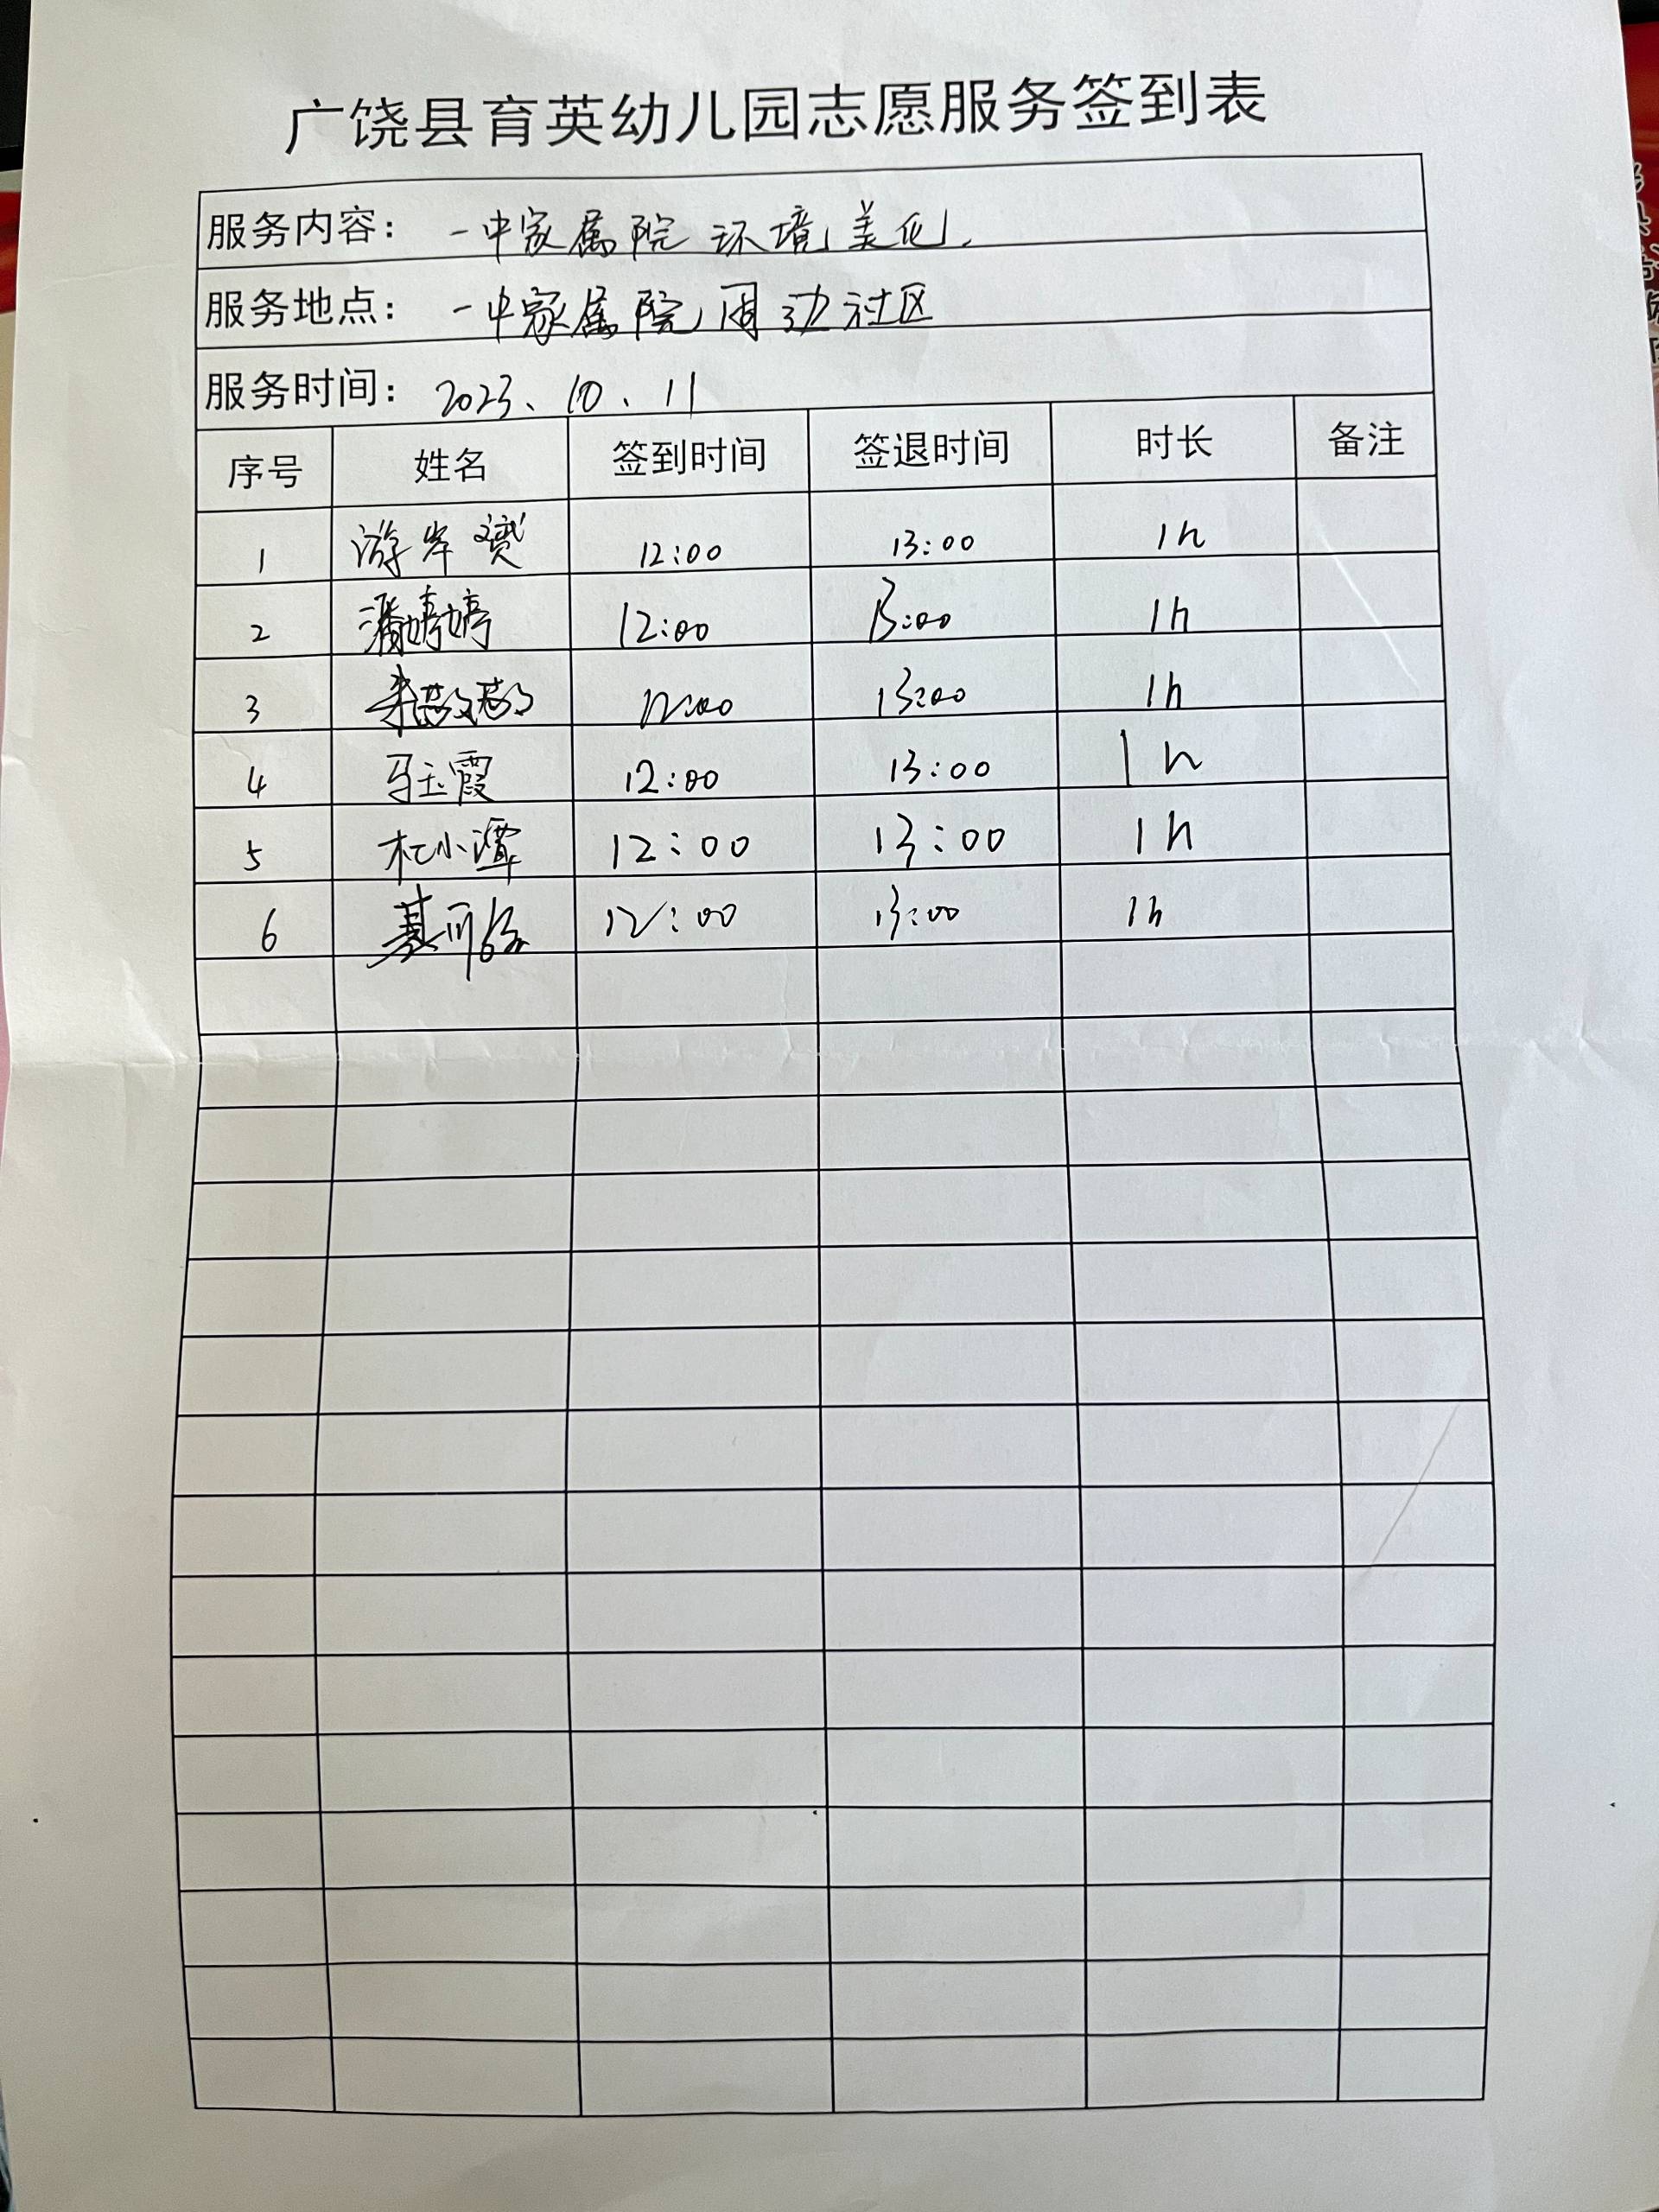 广饶县育英幼儿园志愿服务签到表
服务内容： 一中家属院环境美化.
服务地点： 一中家属院周边社区
服务时间： 2023、10、11
序号 姓名 签到时间 签退时间 时长 备注
1 游岸 12:00 13:00 1h
2 潘婷婷 12:00 13:00 1h
3 12:00 13:00 1h
4 马玉霞 12:00 13:00 1h
5 杜小潭 12:00 13:00 1h
6 12:00 13:00 1h